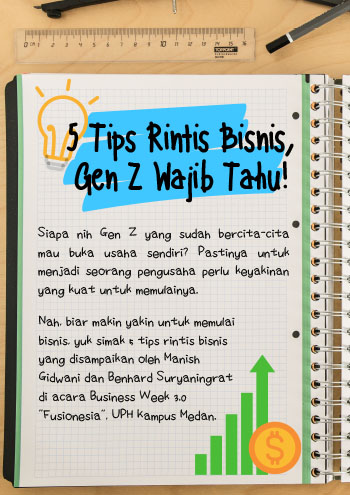 5 Tips Rintis Bisnis,
Gen Z Wajib Tahu!
Siapa nih Gen Z yang sudah bercita-cita
mau buka usaha sendiri? Pastinya untuk
menjadi seorang pengusaha perlu keyakinan
yang kuat untuk memulainya.
Nah, biar makin yakin untuk memulai
bisnis, yuk simak 5 tips rintis bisnis
yang disampaikan oleh Manish
Gidwani dan Benhard Suryaningrat
di acara Business Week 3.0
"Fusionesia", UPH Kampus Medan.
$